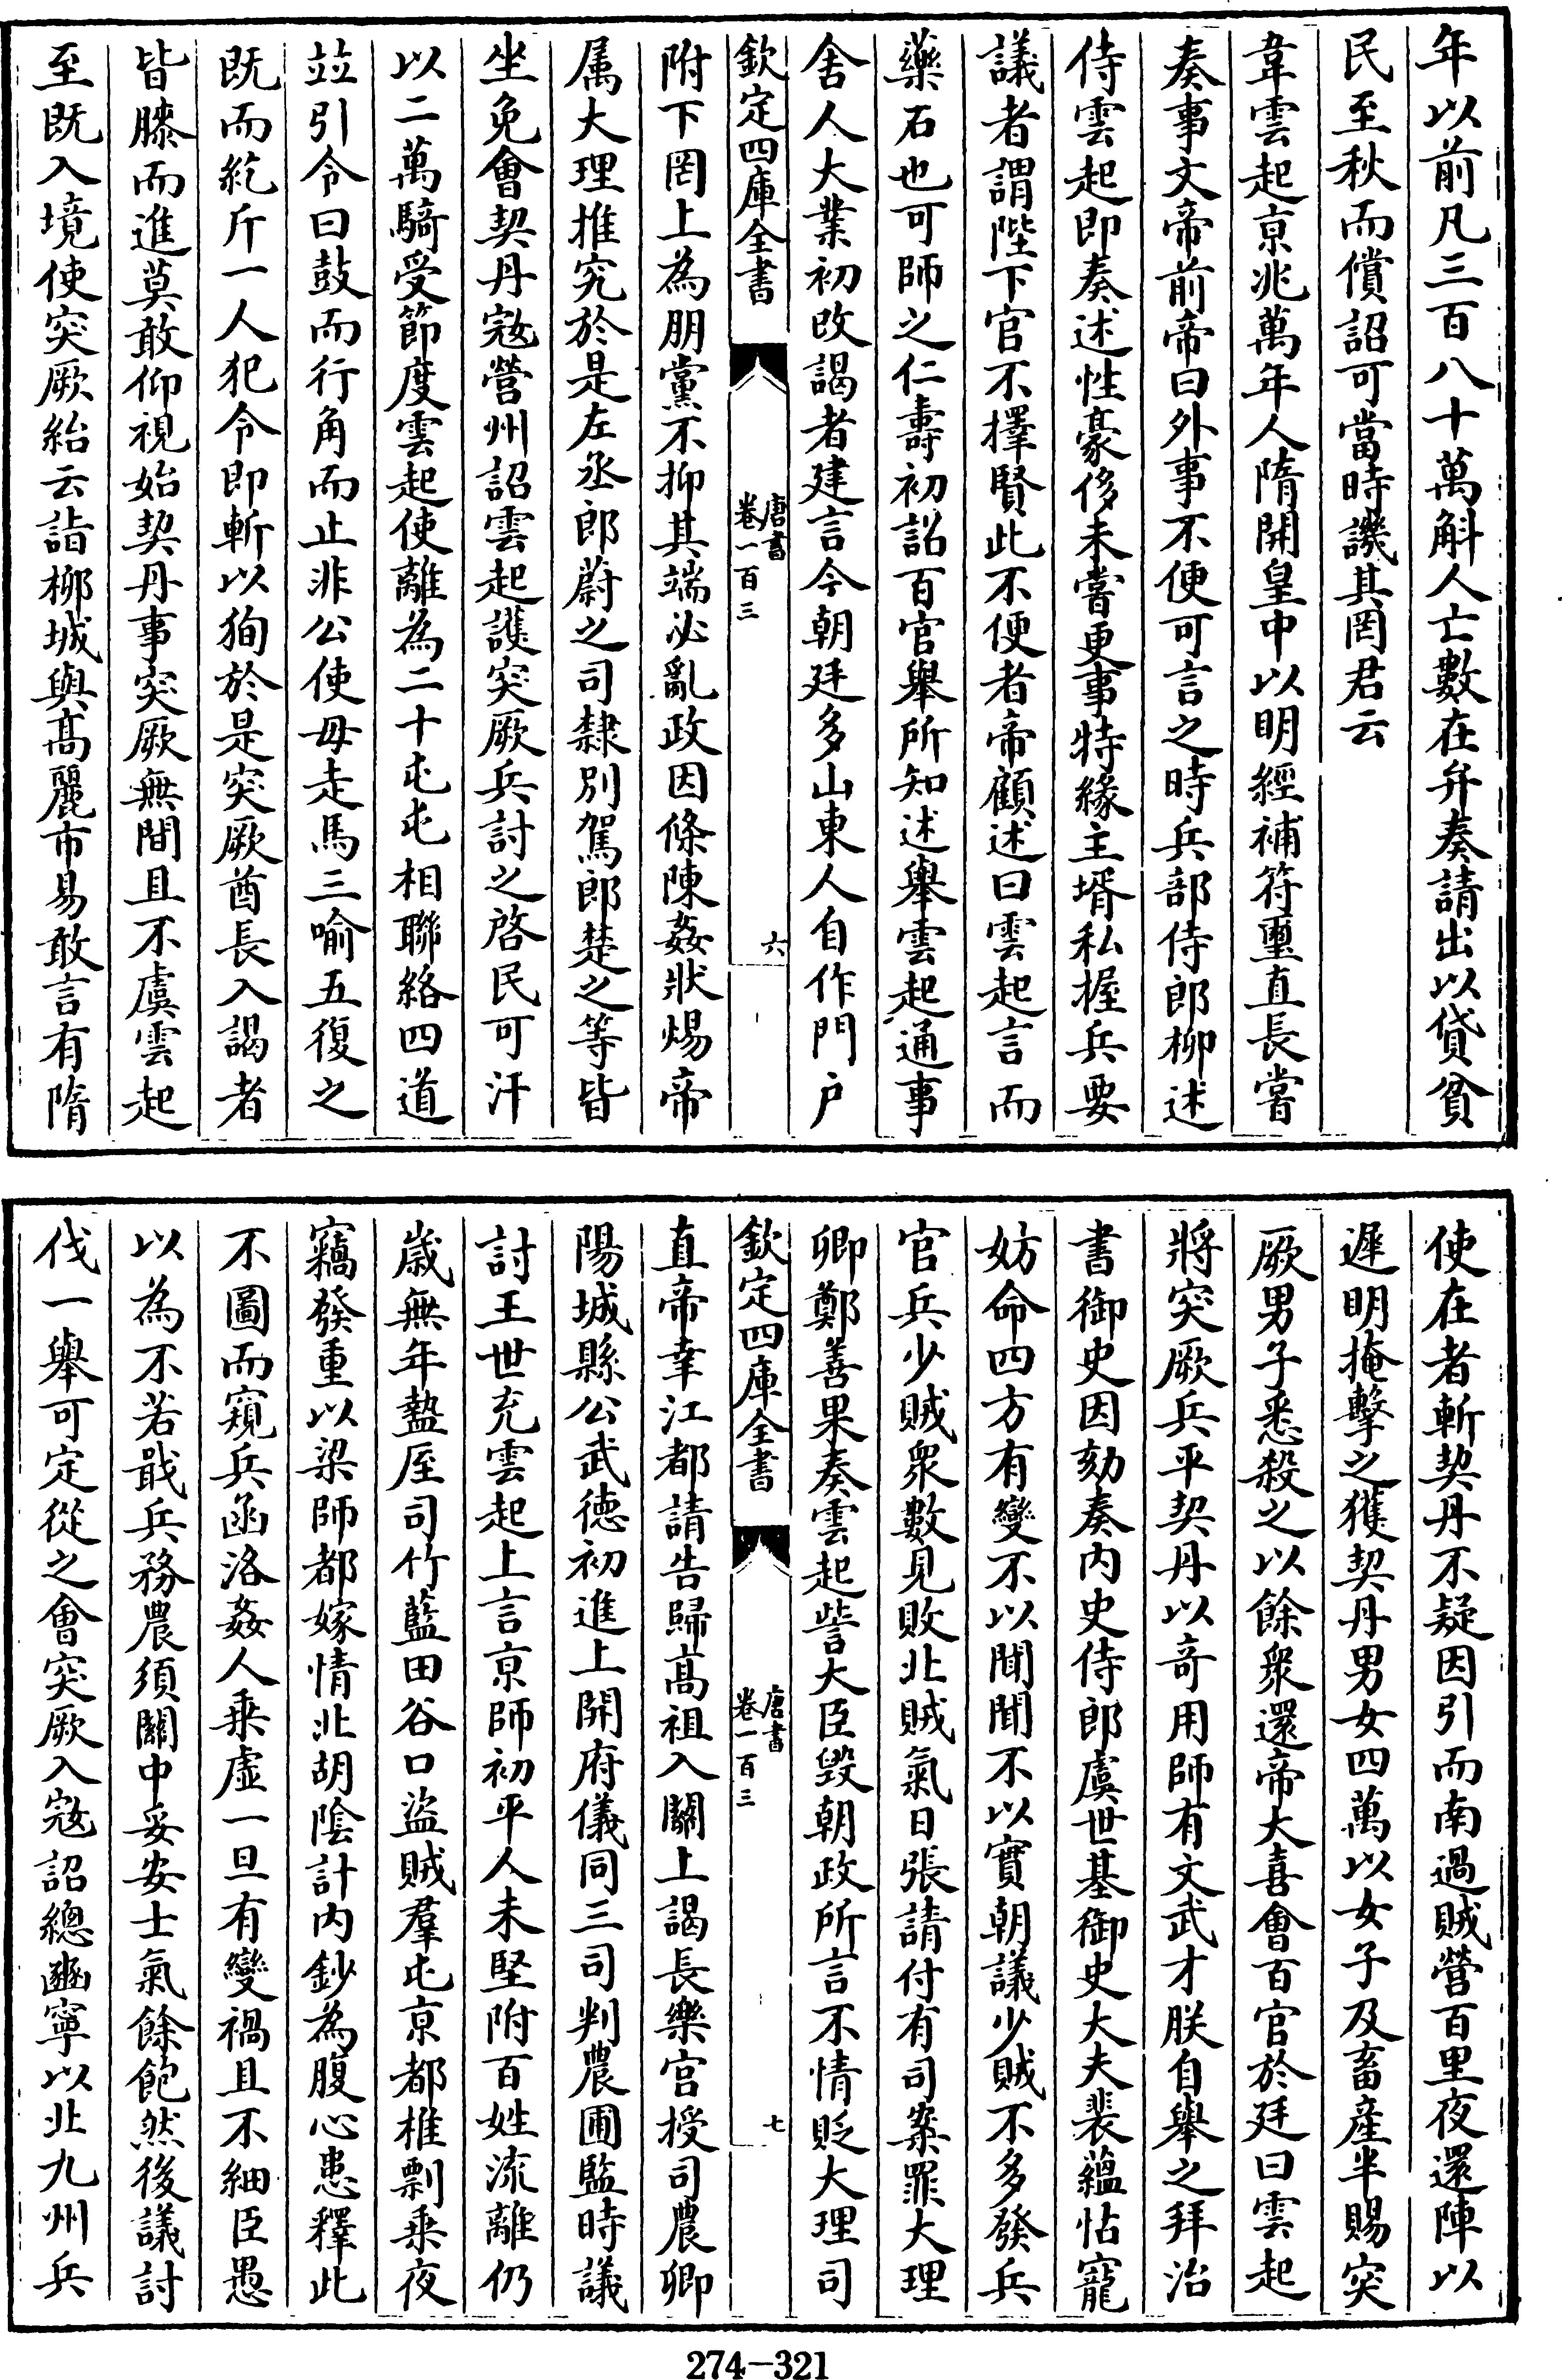 年以前凡三百八十萬斛人亡數在弁奏請出以貸貧
民至秋而償詔可當時譏其罔君云
韋雲起京兆萬年人隋開皇中以明經補符璽直長嘗
奏事文帝前帝曰外事不便可言之時兵部侍郎柳述
侍雲起即奏述性豪侈未嘗更事特緣主壻私握兵要
議者謂陛下官不擇賢此不便者帝顧述曰雲起言而
藥石也可師之仁壽初詔百官舉所知述舉雲起通事
舍人大業初改謁者建言今朝廷多山東人自作門户
欽定四庫全書
唐書
卷一百三
六
附下罔上為朋黨不抑其端必亂政因條陳姦狀煬帝
属大理推究於是左丞郎蔚之司隸別駕郎楚之等皆
坐免會契丹宼營州詔雲起護突厥兵討之啓民可汗
以二萬騎受節度雲起使離為二十屯屯相聯絡四道
竝引令曰鼓而行角而止非公使毋走馬三喻五復之
既而紇斤一人犯令即斬以狥於是突厥酋長入謁者
皆膝而進莫敢仰視始契丹事突厥無間且不虞雲起
至既入境使突厥紿云詣柳城與髙麗市易敢言有隋
使在者斬契丹不疑因引而南過賊營百里夜還陣以
遲明掩擊之獲契丹男女四萬以女子及畜産半賜突
厥男子悉殺之以餘衆還帝大喜會百官於廷曰雲起
將突厥兵平契丹以奇用師有文武才朕自舉之拜治
書御史因劾奏内史侍郎虞世基御史大夫裴蘊怙寵
妨命四方有變不以聞聞不以實朝議少賊不多發兵
官兵少賊衆數見敗北賊氣日張請付有司案罪大理
卿鄭善果奏雲起訾大臣毁朝政所言不情貶大理司
欽定四庫全書
唐書
卷一百三
七
直帝幸江都請告歸髙祖入關上謁長樂宫授司農卿
陽城縣公武德初進上開府儀同三司判農圃監時議
討王世充雲起上言京師初平人未堅附百姓流離仍
歳無年盩厔司竹藍田谷口盜賊羣屯京都椎剽乘夜
竊發重以梁師都嫁情北胡陰計内鈔為腹心患釋此
不圖而窺兵函洛姦人乘虛一旦有變禍且不細臣愚
以為不若戢兵務農須關中妥安士氣餘飽然後議討
伐一舉可定從之會突厥入宼詔總豳寧以北九州兵
274-321